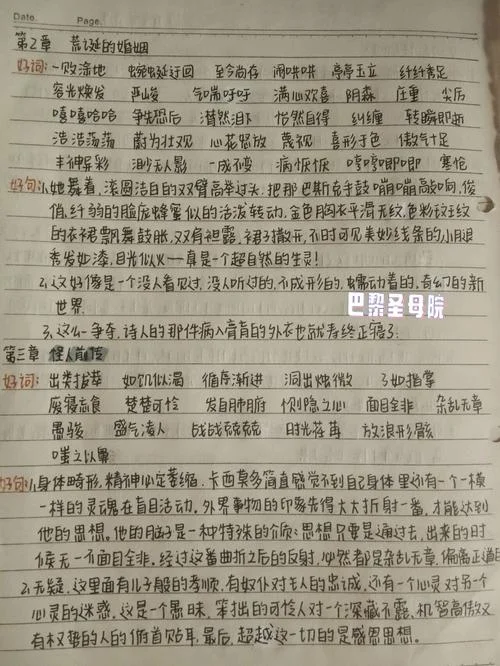 Date. Page.
第2章 荒诞的婚姻
好词:一败涂地 蜿蜒迂回 至今尚存 闹哄哄 亭亭玉立 纤纤秀足
容光焕发 严峻 气喘吁吁 满心欢喜 阴森 庄重 尖厉
嘻嘻哈哈 争先恐后 潸然泪下 怡然自得 纠缠 转瞬即逝
浩浩荡荡 蔚为壮观 心花怒放 蔑视 喜形于色 傲气十足
丰神异彩 渺无人影 一成不变 病恹恹 哼哼唧唧 寒伧
好句:1、她舞着,滚圆洁白的双臂高举过头,把那巴斯克手鼓嘣嘣敲响,俊
俏、纤弱的脸庞蜂蜜似的活泼转动,金色胸衣平滑无纹,色彩斑斓
的衣裙飘舞鼓胀,双肩袒露,裙子撒开,不时可见美妙线条的小腿
秀发如漆,目光似火——真是一个超自然的生灵!
2、这好像是一个没人看见过,没人听过的,不成形的,蠕动着的,奇幻的新
世界.
巴黎圣母院
3、这么一争夺,诗人的那件病入膏肓的外衣也就寿终正寝了.
第三章 怪人首传
好词:出类拔萃 如饥似渴 循序渐进 洞出烛微 了如指掌
废寝忘食 楚楚可怜 发自肺腑 恻隐之心 面目全非 杂乱无章
愚骏 盛气凌人 战战兢兢 时光荏苒 放浪形骸
嗤之以鼻
好句:1、身体畸形,精神必定萎缩.卡西莫多简直感觉不到自己身体里还有一个一模
一样的灵魂在盲目活动.外界事物的印象先得大大折射一番,才能达到
他的思想.他的脑子是一种特殊的介质:思想只要是通过去,出来的时
候无一不面目全非.经过这番曲折之后的反射,必然都是杂乱无章,偏离正道的
2、无疑,这里面有儿子般的孝顺,有奴仆对主人的忠诚,还有一个心灵对另一个
心灵的迷惑,这是一个愚昧、笨拙的可怜人对一个深藏不露、机智高傲又
有权势的人的俯首贴耳.最后,超越这一切的是感恩思想.